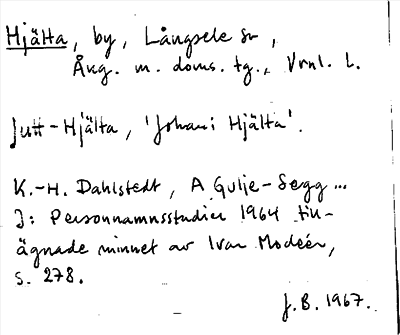 Hjälta, by, Långsele sn,
Ångm. m. doms. tg., Vrnl. L.
Jutt-Hjälta, 'Johan i Hjälta'.
K.-H. Dahlstedt, A Gulje-Segg...
I: Personnamnsstudier 1964 till-
ägnade minnet av Ivar Modeér,
s. 278.
J.B. 1967.